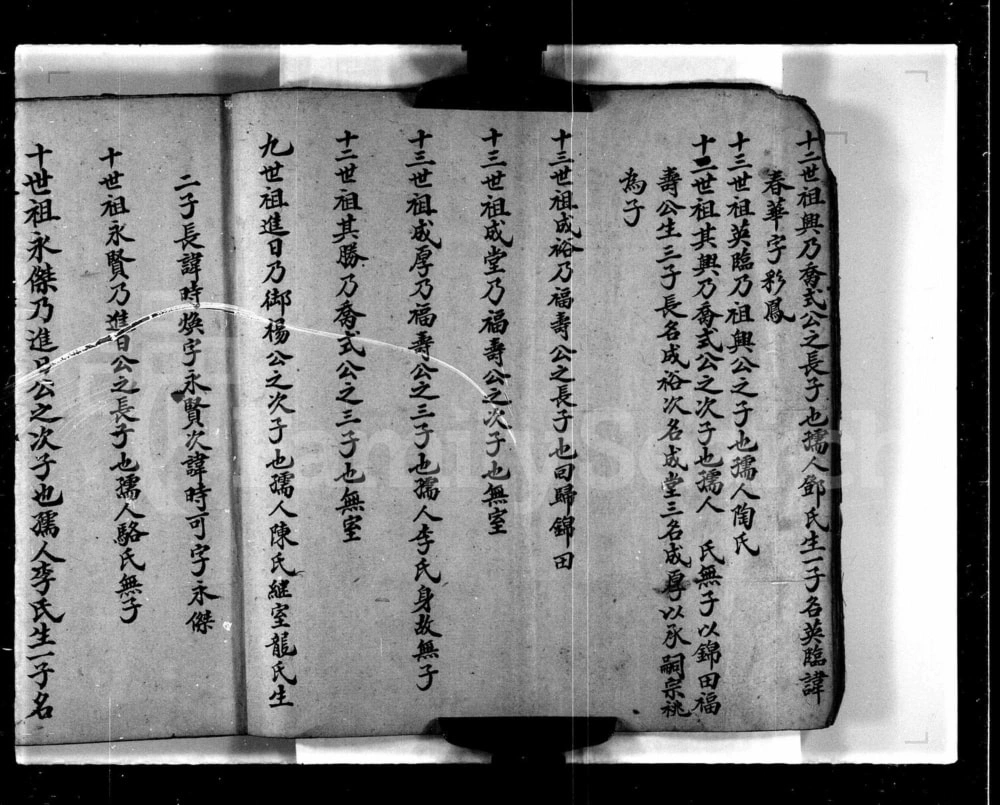 十二世祖興乃喬式公之長子也孺人鄧氏生一子名英臨諱
春華字彩鳳
十三世祖英臨乃祖興公之子也孺人陶氏
十二世祖其興乃喬式公之次子也孺人　氏無子以錦田福
壽公生三子長名成裕次名成堂三名成厚以承嗣宗祧
為子
十三世祖成裕乃福壽公之長子也回歸錦田
十三世祖成堂乃福壽公之次子也無室
十三世祖成厚乃福壽公之三子也孺人李氏身故無子
十二世祖其勝乃喬式公之三子也無室
九世祖進日乃御楊公之次子也孺人陳氏繼室龍氏生
二子長諱時煥字永賢次諱時可字永傑
十世祖永賢乃進日公之長子也孺人駱氏無子
十世祖永傑乃進日公之次子也孺人李氏生一子名
FamilySearch